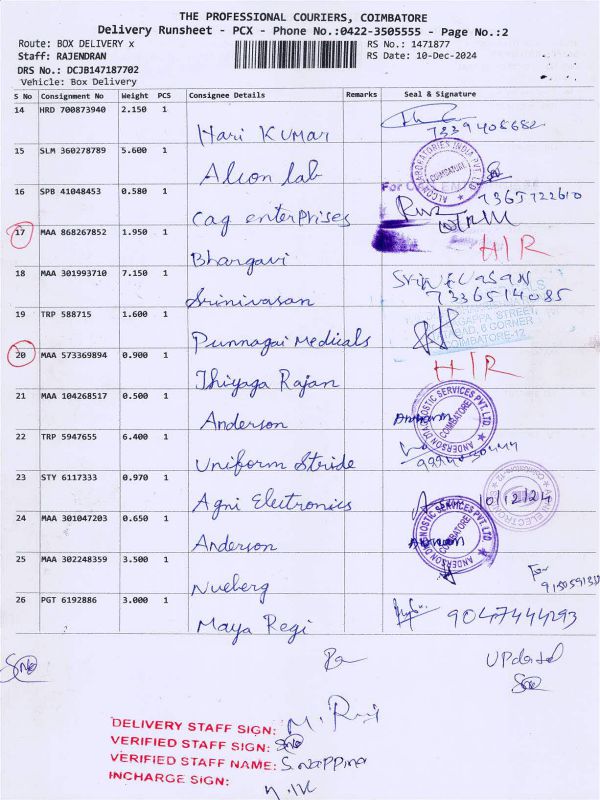 THE PROFESSIONAL COURIERS, COIMBATORE
Delivery Runsheet - PCX - Phone No.:0422-3505555 - Page No.:2
Route: BOX DELIVERY x
RS No.: 1471877
Staff: RAJENDRAN
RS Date: 10-Dec-2024
DRS No.: DCJB147187702
Vehicle: Box Delivery
S No Consignment No Weight PCS Consignee Details Remarks Seal & Signature
14 HRD 700873940 2.150 1
Hari Kumar
15 SLM 360278789 5.600 1
Alcon lab
ALCON LABORATORIES INDIA PVT LTD
COIMBATORE
16 SPB 41048453 0.580 1
Cag enterprises
17 MAA 868267852 1.950 1
Bhargavi
H/R
18 MAA 301993710 7.150 1
Srinivasan
SRINIVASAN
7336514085
19 TRP 588715 1.600 1
Punnagai Medicals
STREET,
CORNER
COIMBATORE-12
20 MAA 573369894 0.900 1
Thiyaga Rajan
H/R
21 MAA 104268517 0.500 1
Anderson
ANDERSON DIAGNOSTIC SERVICES PVT. LTD
COIMBATORE
22 TRP 5947655 6.400 1
Uniform Stride
23 STY 6117333 0.970 1
Agni Electronics
10/12/24
24 MAA 301047203 0.650 1
Anderson
ANDERSON DIAGNOSTIC SERVICES PVT. LTD
COIMBATORE
25 MAA 302248359 3.500 1
Nueberg
For
26 PGT 6192886 3.000 1
Maya Regi
9047444293
Updated
DELIVERY STAFF SIGN:
VERIFIED STAFF SIGN:
VERIFIED STAFF NAME:
INCHARGE SIGN: